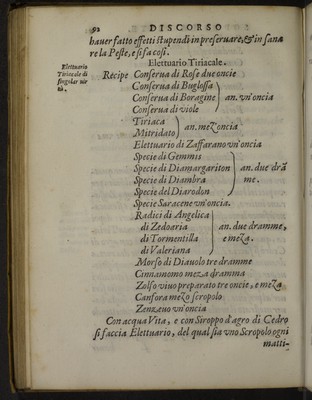 92 DISCORSO
hauer fatto effetti stupendi in preseruare, & in sana
re la Peste, e si fa così.
Elettuario Tiriacale.
Elettuario
Tiriacale di
singolar uir
tù.
Recipe Conserua di Rose due oncie
Conserua di Buglossa
Conserua di Boragine } an. vn'oncia
Conserua di viole
Tiriaca
Mitridato } an. mez'oncia
Elettuario di Zaffarano vn'oncia
Specie di Gemmis
Specie di Diamargariton } an. due drã
Specie di Diambra me.
Specie del Diarodon
Specie Saracene vn'oncia.
Radici di Angelica
di Zedoaria } an. due dramme,
di Tormentilla e meza.
di Valeriana
Morso di Diauolo tre dramme
Cinnamomo meza dramma
Zolfo viuo preparato tre oncie, e meza
Canfora mezo scropolo
Zenzauo vn'oncia
Con acqua Vita, e con Siroppo d'agro di Cedro
si faccia Elettuario, del qual sia vno Scropolo ogni
matti-